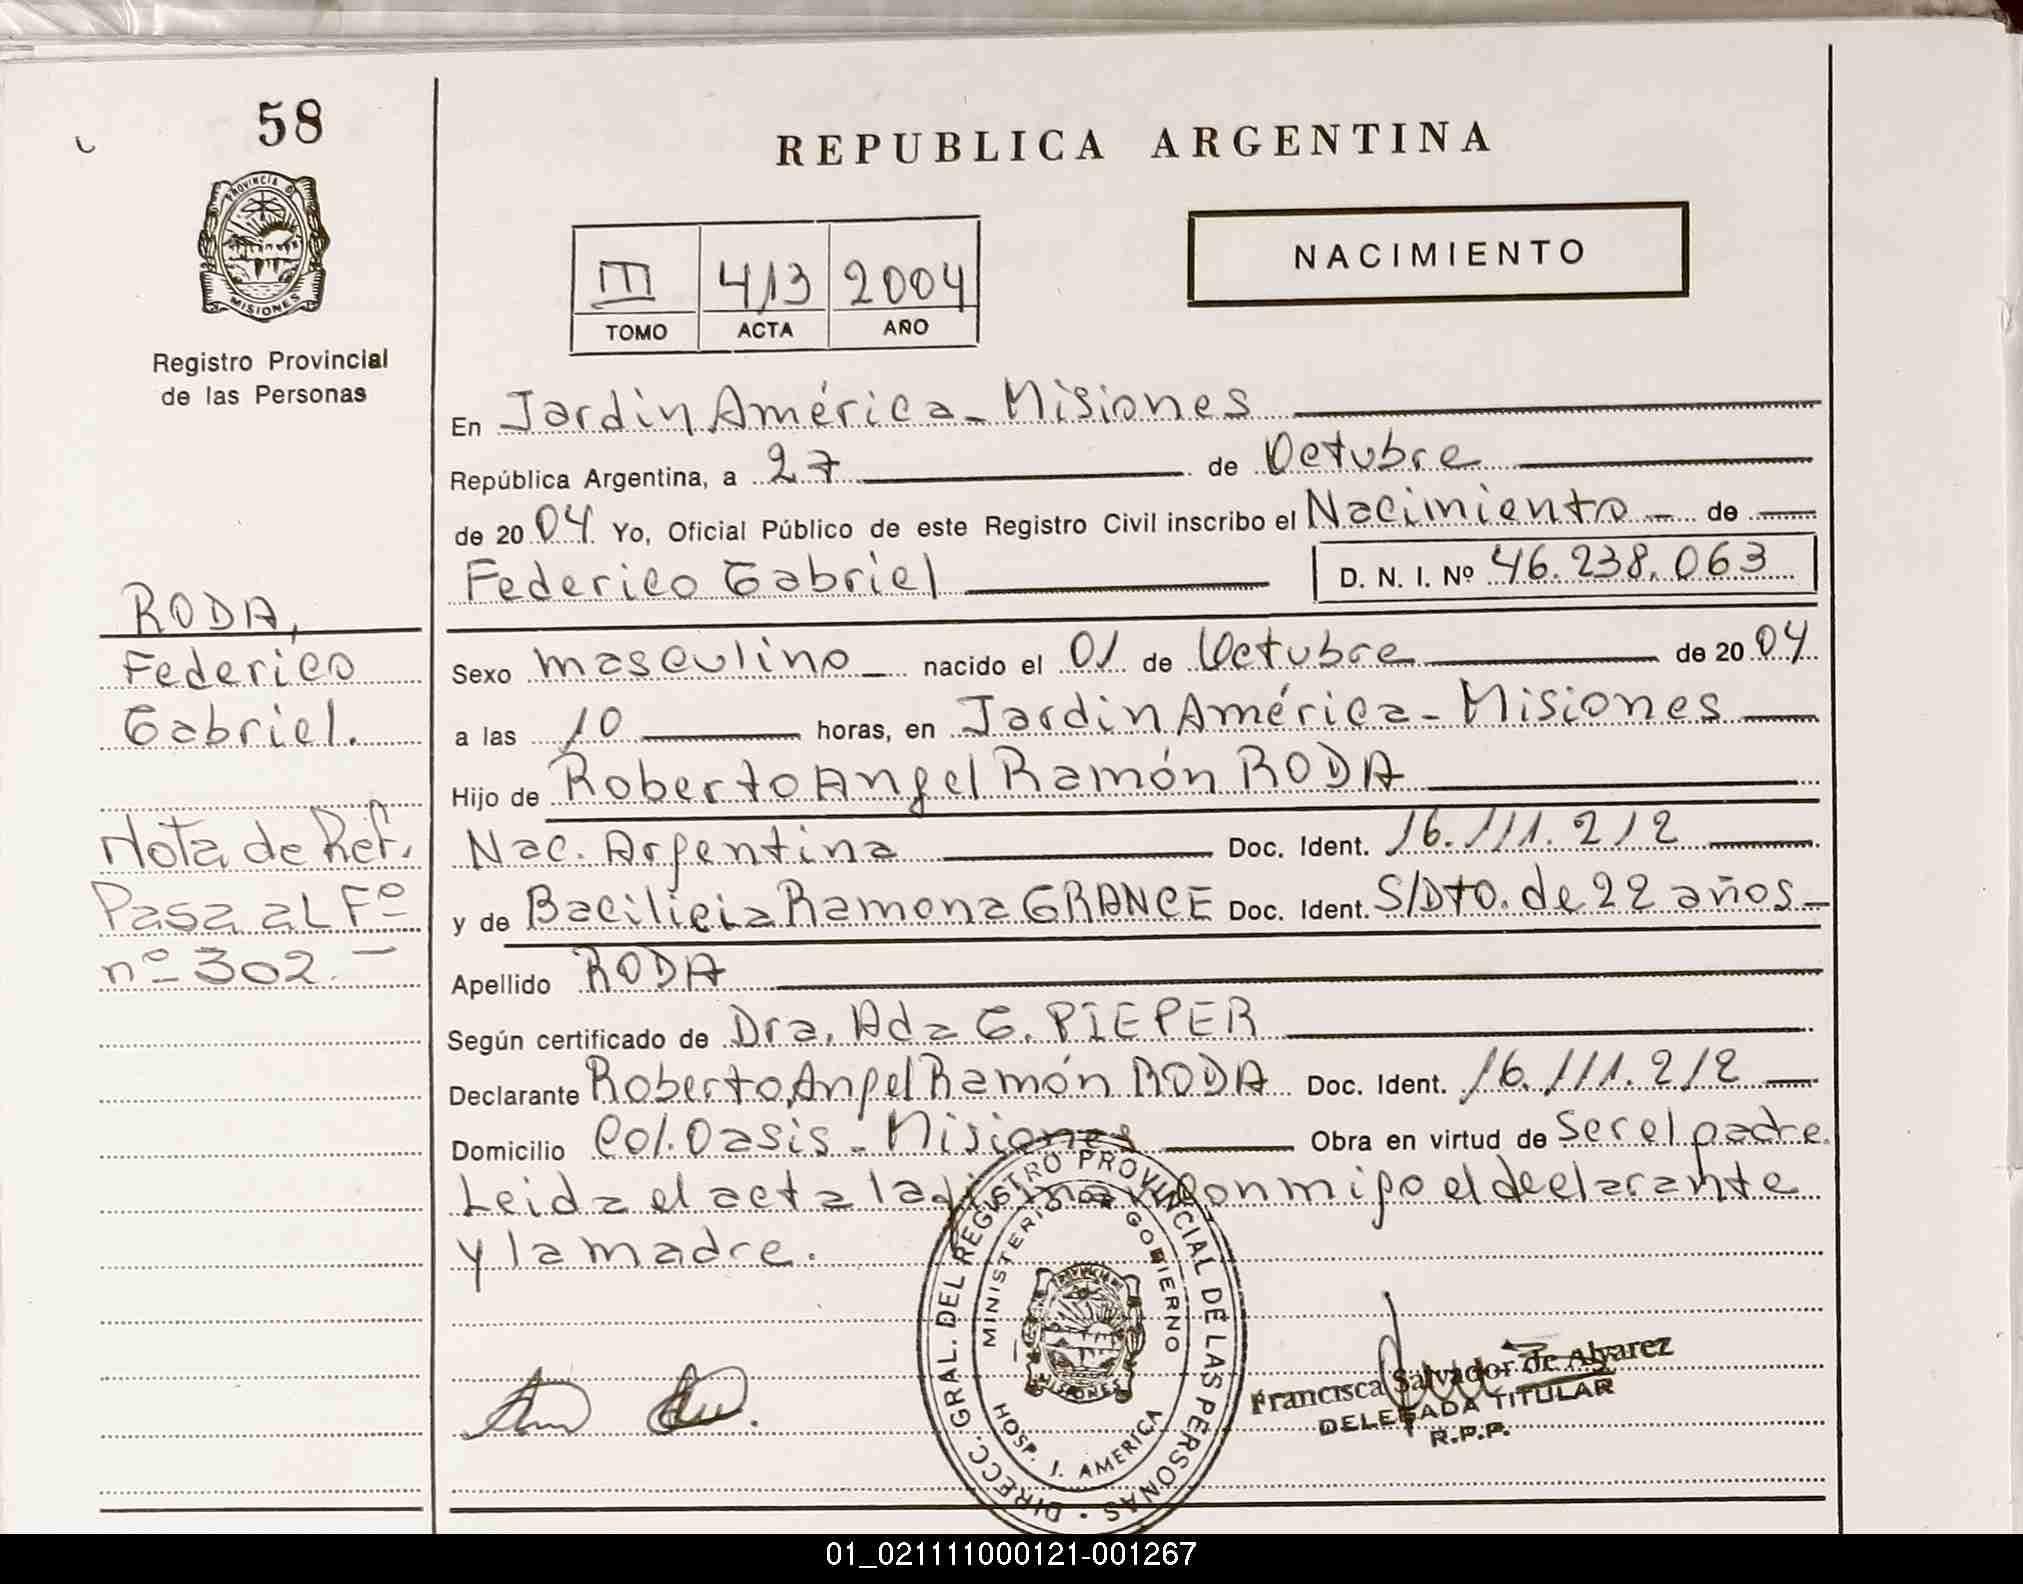 58
REPUBLICA ARGENTINA
PROVINCIA D
MISIONES
Registro Provincial
de las Personas
NACIMIENTO
III 413 2004
TOMO ACTA AÑO
En Jardin América - Misiones
República Argentina, a 27 de Octubre
de 2004 Yo, Oficial Público de este Registro Civil inscribo el Nacimiento - de
Federico Gabriel D. N. I. Nº 46.238.063
RODA,
Federico
Gabriel.
Nota de Ref.
Pasa al Fº
nº 302. -
Sexo masculino - nacido el 01 de Octubre de 2004
a las 10 horas, en Jardin América - Misiones
Hijo de Roberto Angel Ramón RODA
Nac. Argentina Doc. Ident. 16.111.212
y de Bacilicia Ramona GRANCE Doc. Ident. S/Dto. de 22 años -
Apellido RODA
Según certificado de Dra. Ada G. PIEPER
Declarante Roberto Angel Ramón RODA Doc. Ident. 16.111.212
Domicilio Col. Oasis - Misiones Obra en virtud de ser el padre.
Leida el acta la conmigo el declarante
y la madre.
DIRECC. GRAL. DEL REGISTRO PROVINCIAL DE LAS PERSONAS
MINISTERIO DE GOBIERNO
MISIONES
HOSP. J. AMERICA
Francisca Salvador de Alvarez
DELEGADA TITULAR
R.P.P.
01_021111000121-001267